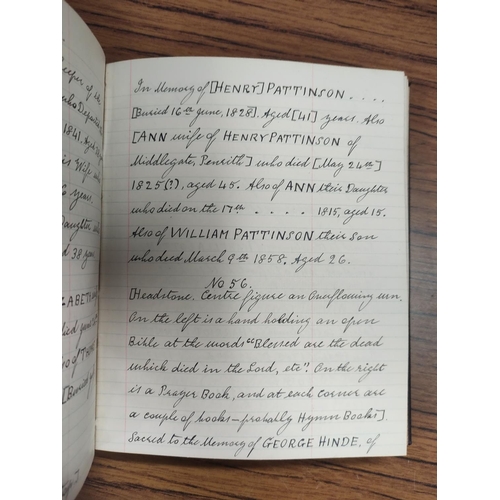 In Memory of [HENRY] PATTINSON . . . .
[Buried 16th June, 1828]. Aged [41] years. Also
[ANN wife of HENRY PATTINSON of
Middlegate, Penrith] who died [May 24th]
1825(?), aged 45. Also of ANN their Daughter
who died on the 17th . . . . 1815, aged 15.
Also of WILLIAM PATTINSON their Son
who died March 9th 1858. Aged 26.
No 56.
[Headstone. Centre figure an Overflowing urn.
On the left is a hand holding an open
Bible at the words "Blessed are the dead
which died in the Lord, etc". On the right
is a Prayer Book, and at each corner are
a couple of books – probably Hymn Books]
Sacred to the Memory of GEORGE HINDE, of
of the
who Departed
1841. Aged
is Wife who
years.
Daughter who
d 38 years
ZABETH
died
so of
[Buried